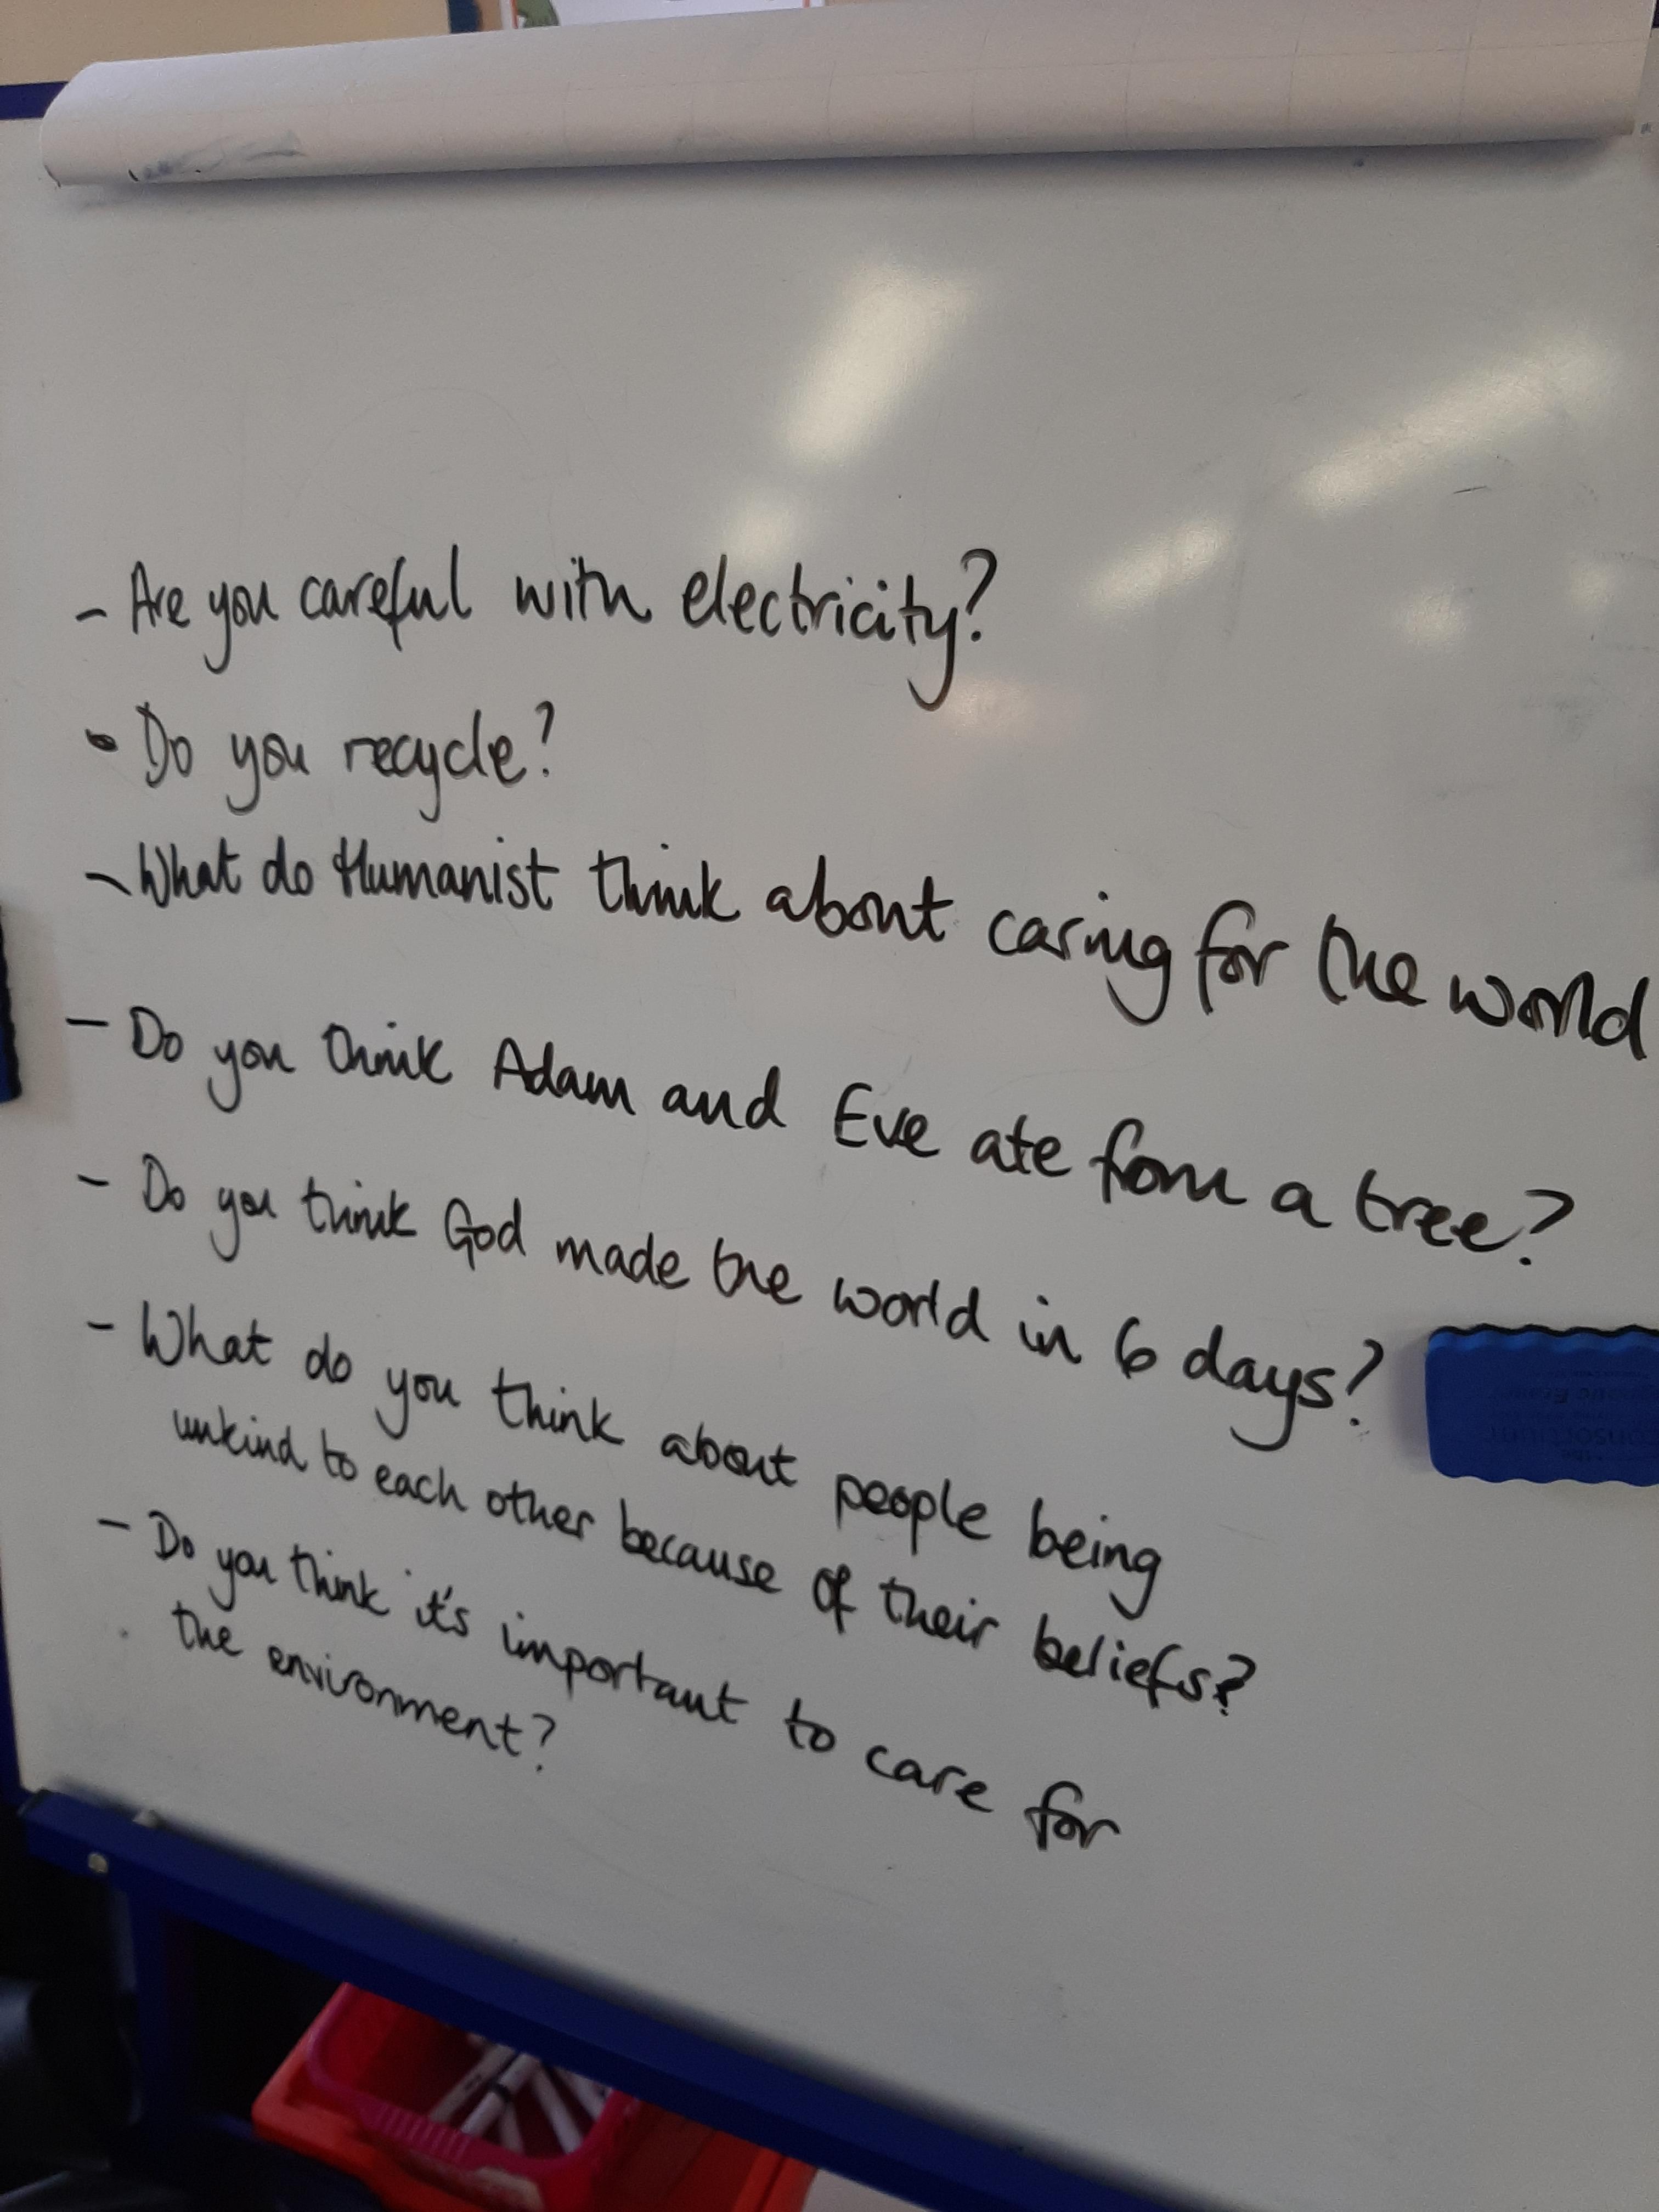 - Are you careful with electricity?
• Do you recycle?
- What do Humanist think about caring for the world
- Do you think Adam and Eve ate from a tree?
- Do you think God made the world in 6 days?
- What do you think about people being
unkind to each other because of their beliefs?
- Do you think it's important to care for
the environment?